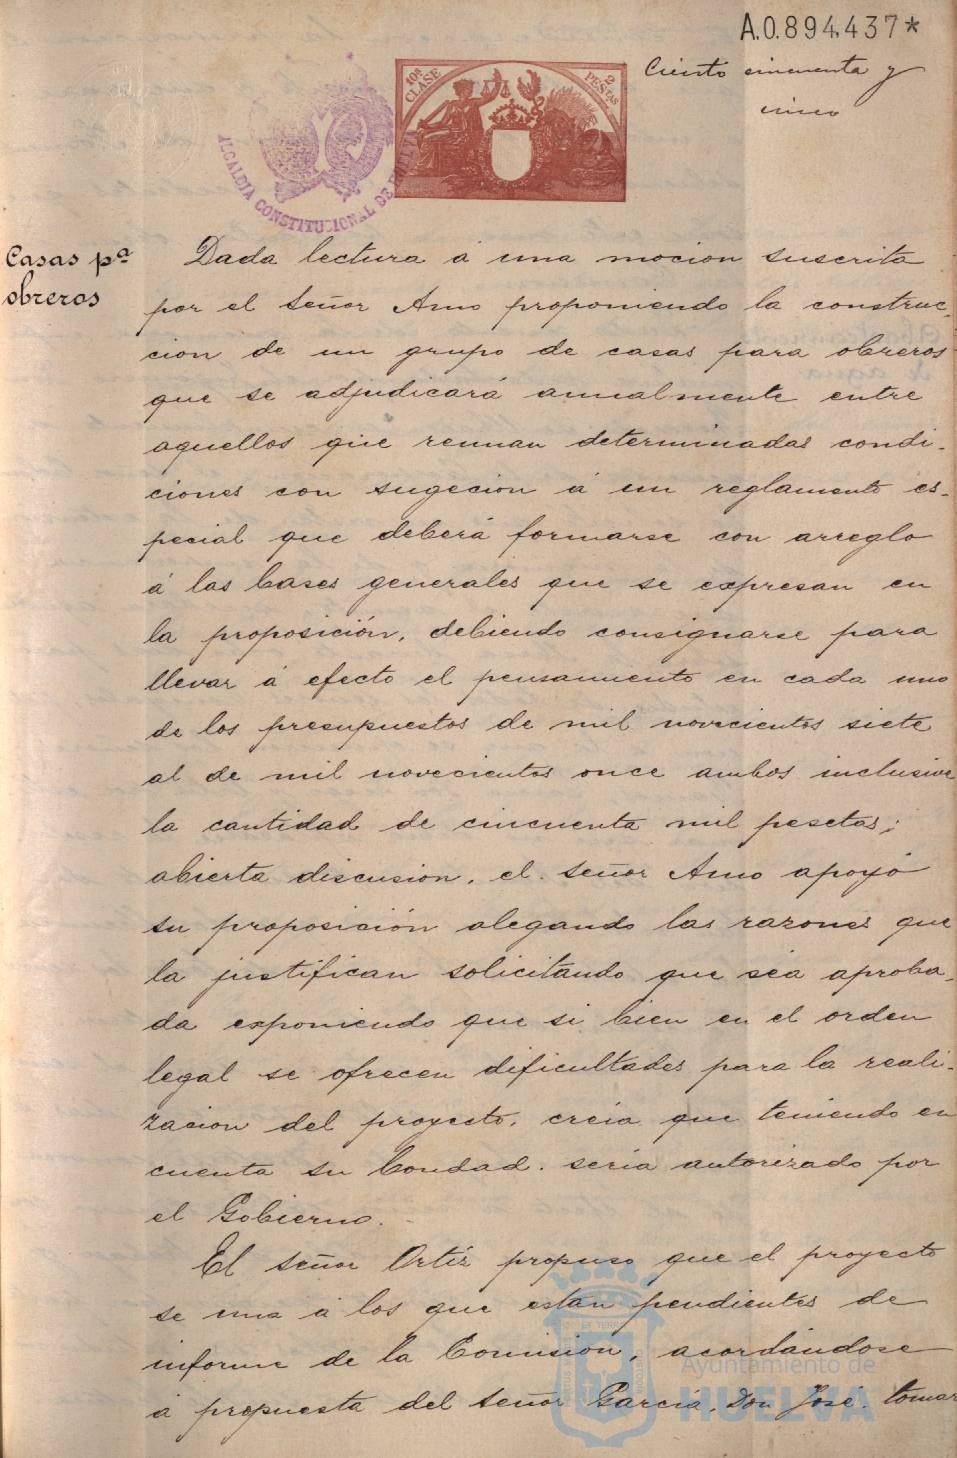 A.0.894.437*
Ciento cincuenta y
cinco
10ª CLASE
2 PESETAS
ALCALDIA CONSTITUCIONAL DE HUELVA
Casas pª
obreros
Dada lectura á una mocion suscrita
por el Señor Amo proponiendo la construc-
cion de un grupo de casas para obreros
que se adjudicará anualmente entre
aquellos que reunan determinadas condi-
ciones con sugecion á un reglamento es-
pecial que deberá formarse con arreglo
á las bases generales que se expresan en
la proposición, debiendo consignarse para
llevar á efecto el pensamiento en cada uno
de los presupuestos de mil novecientos siete
al de mil novecientos once ambos inclusive
la cantidad de cincuenta mil pesetas;
abierta discusion, el Señor Amo apoyó
su proposición alegando las razones que
la justifican solicitando que sea aproba-
da exponiendo que si bien en el orden
legal se ofrecen dificultades para la reali-
zacion del proyecto, creia que teniendo en
cuenta su bondad. seria autorizado por
el Gobierno.
El Señor Ortiz propuso que el proyecto
se una á los que estan pendientes de
informe de la Comision, acordándose
á propuesta del Señor Garcia, Don José, tomar
Ayuntamiento de
HUELVA